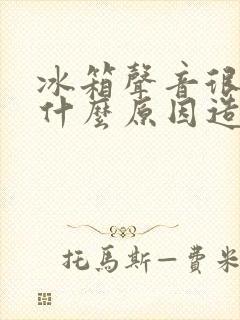 冰箱聲音很
什麼原因造
托馬斯—費米